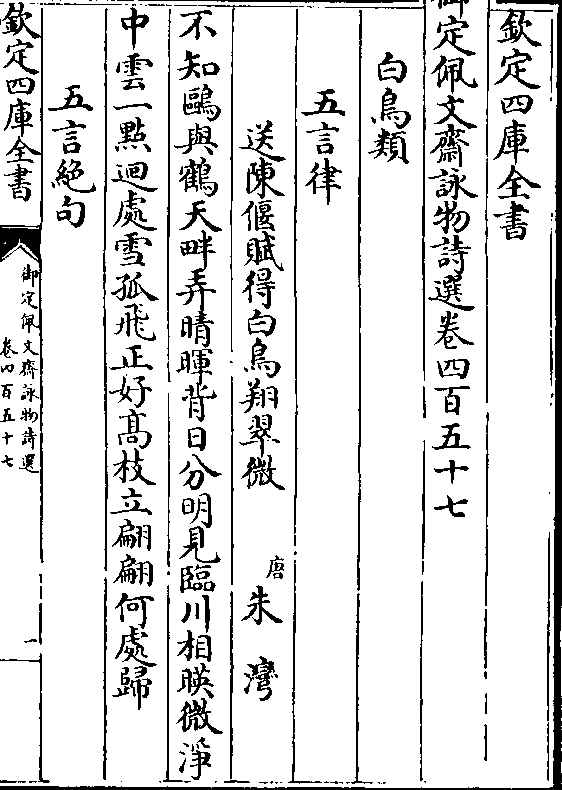 欽定四庫全書
御定佩文齋詠物詩選卷四百五十七
白鳥類
五言律
送陳偃賦得白鳥翔翠微 唐 朱灣
不知鷗與鶴天畔弄晴暉背日分明見臨川相暎微淨
中雲一點迴處雪孤飛正好高枝立翩翩何處歸
五言絶句
欽定四庫全書
御定佩文齋詠物詩選
卷四百五十七
一